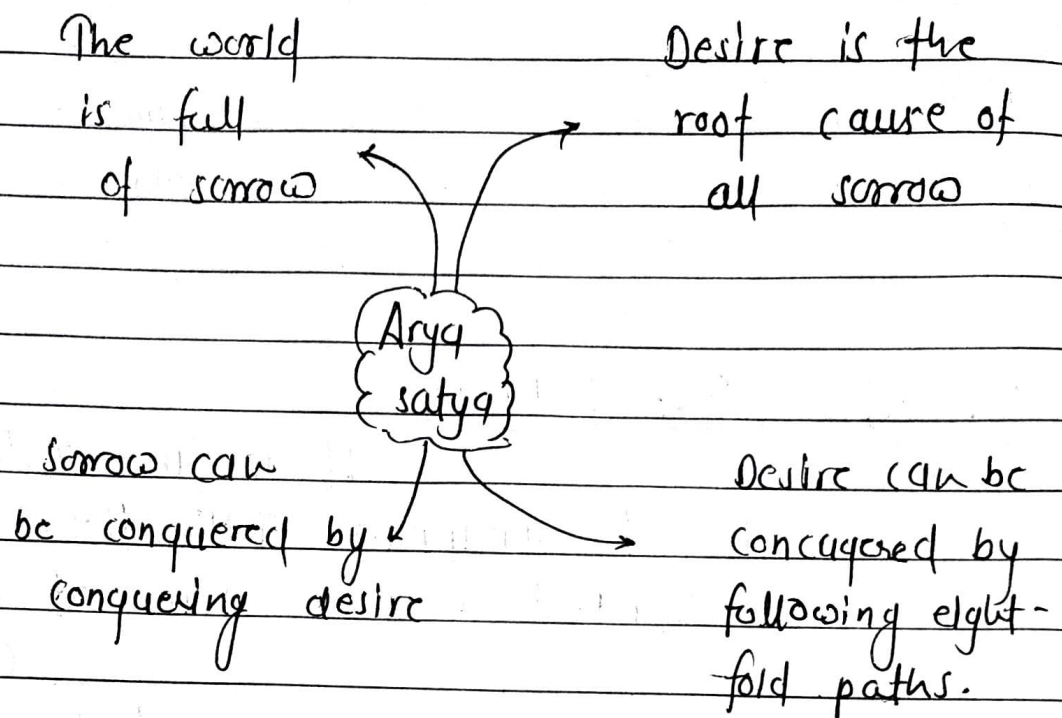 The world
is full
of sorrow
Desire is the
root cause of
all sorrow
Arya
satya
Sorrow can
be conquered by
conquering desire
Desire can be
concuqered by
following eight-
fold paths.